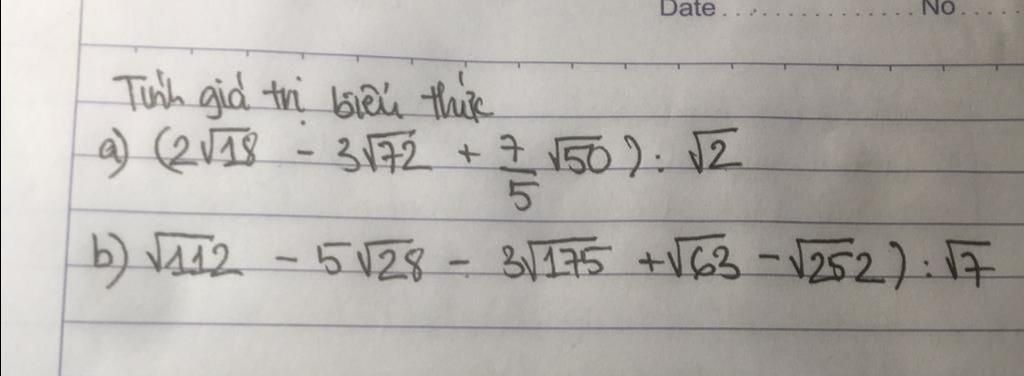 Date ................ No .....
Tính giá trị biểu thức
a) (2√18 - 3√72 + 7/5 √50) : √2
b) √112 - 5√28 - 3√175 + √63 - √252) : √7